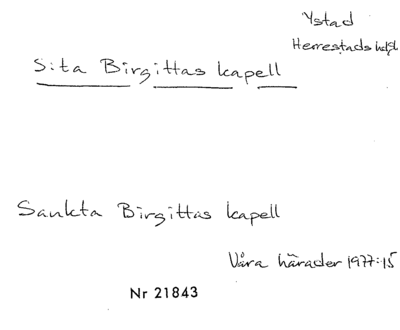 Ystad
Herrestads hd
S:ta Birgittas kapell
Sankta Birgittas kapell
Våra härader 1977:15
Nr 21843